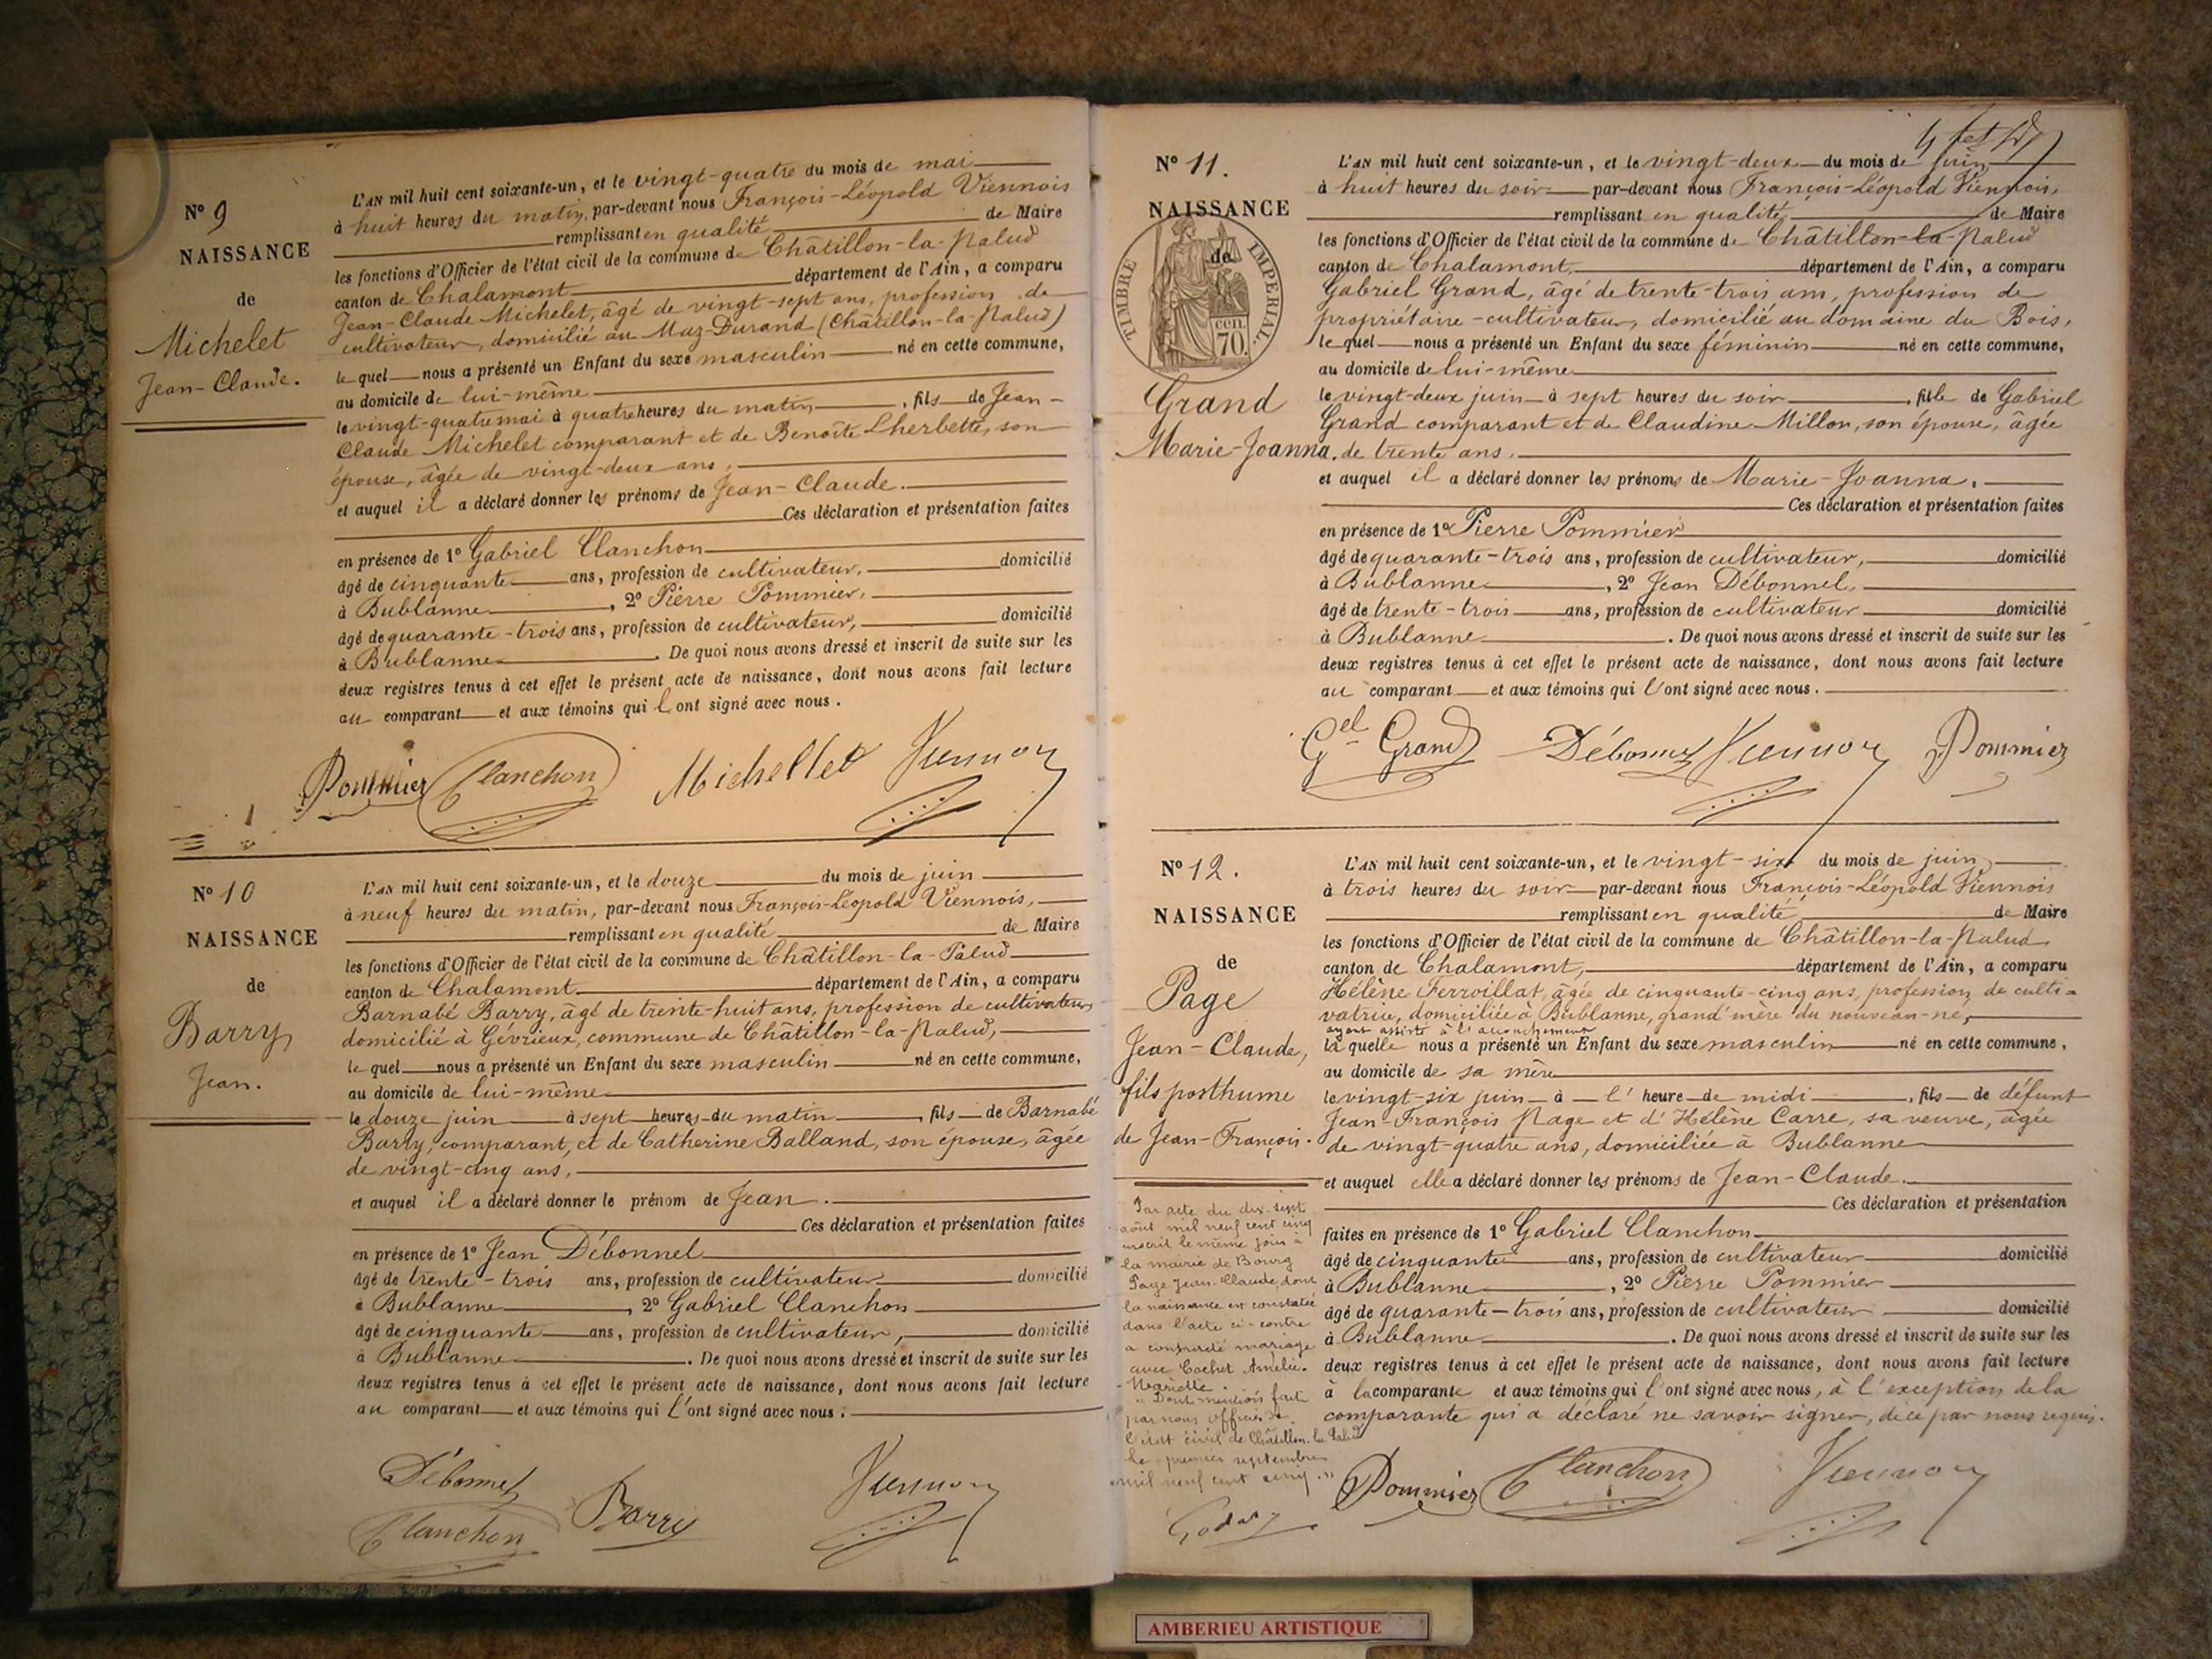 N° 9
NAISSANCE
de
Michelet
Jean-Claude.
L'AN mil huit cent soixante-un, et le vingt-quatre du mois de mai
à huit heures du matin, par-devant nous François-Léopold Viennois
remplissant en qualité de Maire
les fonctions d'Officier de l'état civil de la commune de Châtillon-la-Palud
canton de Chalamont département de l'Ain, a comparu
Jean-Claude Michelet, âgé de vingt-sept ans, profession de
cultivateur, domicilié au Maz-Durand (Châtillon-la-Palud)
lequel nous a présenté un Enfant du sexe masculin né en cette commune,
au domicile de lui-même
le vingt-quatre mai à quatre heures du matin, fils de Jean-
Claude Michelet comparant et de Benoîte Lherbette, son
épouse, âgée de vingt-deux ans,
et auquel il a déclaré donner les prénoms de Jean-Claude.
Ces déclaration et présentation faites
en présence de 1° Gabriel Clanchon
âgé de cinquante ans, profession de cultivateur, domicilié
à Bublanne, 2° Pierre Pommier,
âgé de quarante-trois ans, profession de cultivateur, domicilié
à Bublanne. De quoi nous avons dressé et inscrit de suite sur les
deux registres tenus à cet effet le présent acte de naissance, dont nous avons fait lecture
au comparant et aux témoins qui l'ont signé avec nous.
Pommier Clanchon Michellet Viennois
N° 10
NAISSANCE
de
Barry
Jean.
L'AN mil huit cent soixante-un, et le douze du mois de juin
à neuf heures du matin, par-devant nous François-Léopold Viennois,
remplissant en qualité de Maire
les fonctions d'Officier de l'état civil de la commune de Châtillon-la-Palud
canton de Chalamont département de l'Ain, a comparu
Barnabé Barry, âgé de trente-huit ans, profession de cultivateur
domicilié à Gévrieux, commune de Châtillon-la-Palud,
lequel nous a présenté un Enfant du sexe masculin né en cette commune,
au domicile de lui-même
le douze juin à sept heures du matin, fils de Barnabé
Barry, comparant, et de Catherine Balland, son épouse, âgée
de vingt-cinq ans,
et auquel il a déclaré donner le prénom de Jean.
Ces déclaration et présentation faites
en présence de 1° Jean Débonnel
âgé de trente-trois ans, profession de cultivateur domicilié
à Bublanne, 2° Gabriel Clanchon
âgé de cinquante ans, profession de cultivateur, domicilié
à Bublanne. De quoi nous avons dressé et inscrit de suite sur les
deux registres tenus à cet effet le présent acte de naissance, dont nous avons fait lecture
au comparant et aux témoins qui l'ont signé avec nous.
Débonnel
Clanchon Barry Viennois
N° 11.
NAISSANCE
de
TIMBRE IMPERIAL.
cen.
70.
Grand
Marie-Joanna.
L'AN mil huit cent soixante-un, et le vingt-deux du mois de juin
à huit heures du soir par-devant nous François-Léopold Viennois,
remplissant en qualité de Maire
les fonctions d'Officier de l'état civil de la commune de Châtillon-la-Palud
canton de Chalamont, département de l'Ain, a comparu
Gabriel Grand, âgé de trente-trois ans, profession de
propriétaire-cultivateur, domicilié au domaine du Bois,
lequel nous a présenté un Enfant du sexe féminin né en cette commune,
au domicile de lui-même
le vingt-deux juin à sept heures du soir, fille de Gabriel
Grand comparant et de Claudine Millon, son épouse, âgée
de trente ans.
et auquel il a déclaré donner les prénoms de Marie-Joanna.
Ces déclaration et présentation faites
en présence de 1° Pierre Pommier
âgé de quarante-trois ans, profession de cultivateur, domicilié
à Bublanne, 2° Jean Débonnel,
âgé de trente-trois ans, profession de cultivateur domicilié
à Bublanne. De quoi nous avons dressé et inscrit de suite sur les
deux registres tenus à cet effet le présent acte de naissance, dont nous avons fait lecture
au comparant et aux témoins qui l'ont signé avec nous.
Gel Grand Débonnel Viennois Pommier
N° 12.
NAISSANCE
de
Page
Jean-Claude,
fils posthume
de Jean-François.
L'AN mil huit cent soixante-un, et le vingt-six du mois de juin
à trois heures du soir par-devant nous François-Léopold Viennois
remplissant en qualité de Maire
les fonctions d'Officier de l'état civil de la commune de Châtillon-la-Palud
canton de Chalamont, département de l'Ain, a comparu
Hélène Ferroillat, âgée de cinquante-cinq ans, profession de culti-
vatrice, domiciliée à Bublanne, grand'mère du nouveau-né,
ayant assisté à l'accouchement
laquelle nous a présenté un Enfant du sexe masculin né en cette commune,
au domicile de sa mère
le vingt-six juin à l'heure de midi, fils de défunt
Jean-François Page et d'Hélène Carre, sa veuve, âgée
de vingt-quatre ans, domiciliée à Bublanne
et auquel elle a déclaré donner les prénoms de Jean-Claude.
Ces déclaration et présentation
faites en présence de 1° Gabriel Clanchon
âgé de cinquante ans, profession de cultivateur domicilié
à Bublanne, 2° Pierre Pommier
âgé de quarante-trois ans, profession de cultivateur domicilié
à Bublanne. De quoi nous avons dressé et inscrit de suite sur les
deux registres tenus à cet effet le présent acte de naissance, dont nous avons fait lecture
à la comparante et aux témoins qui l'ont signé avec nous, à l'exception de la
comparante qui a déclaré ne savoir signer, de ce par nous requis.
Par acte du dix-sept
août mil neuf cent cinq
inscrit le même jour à
la mairie de Bourg
Page Jean-Claude, dont
la naissance est constatée
dans l'acte ci-contre
a contracté mariage
avec Cochet Amélie-
Mariette.
Dont mention faite
par nous officier de
l'état civil de Châtillon-la-Palud
le premier septembre
mil neuf cent cinq."
Pommier Clanchon Viennois
AMBERIEU ARTISTIQUE